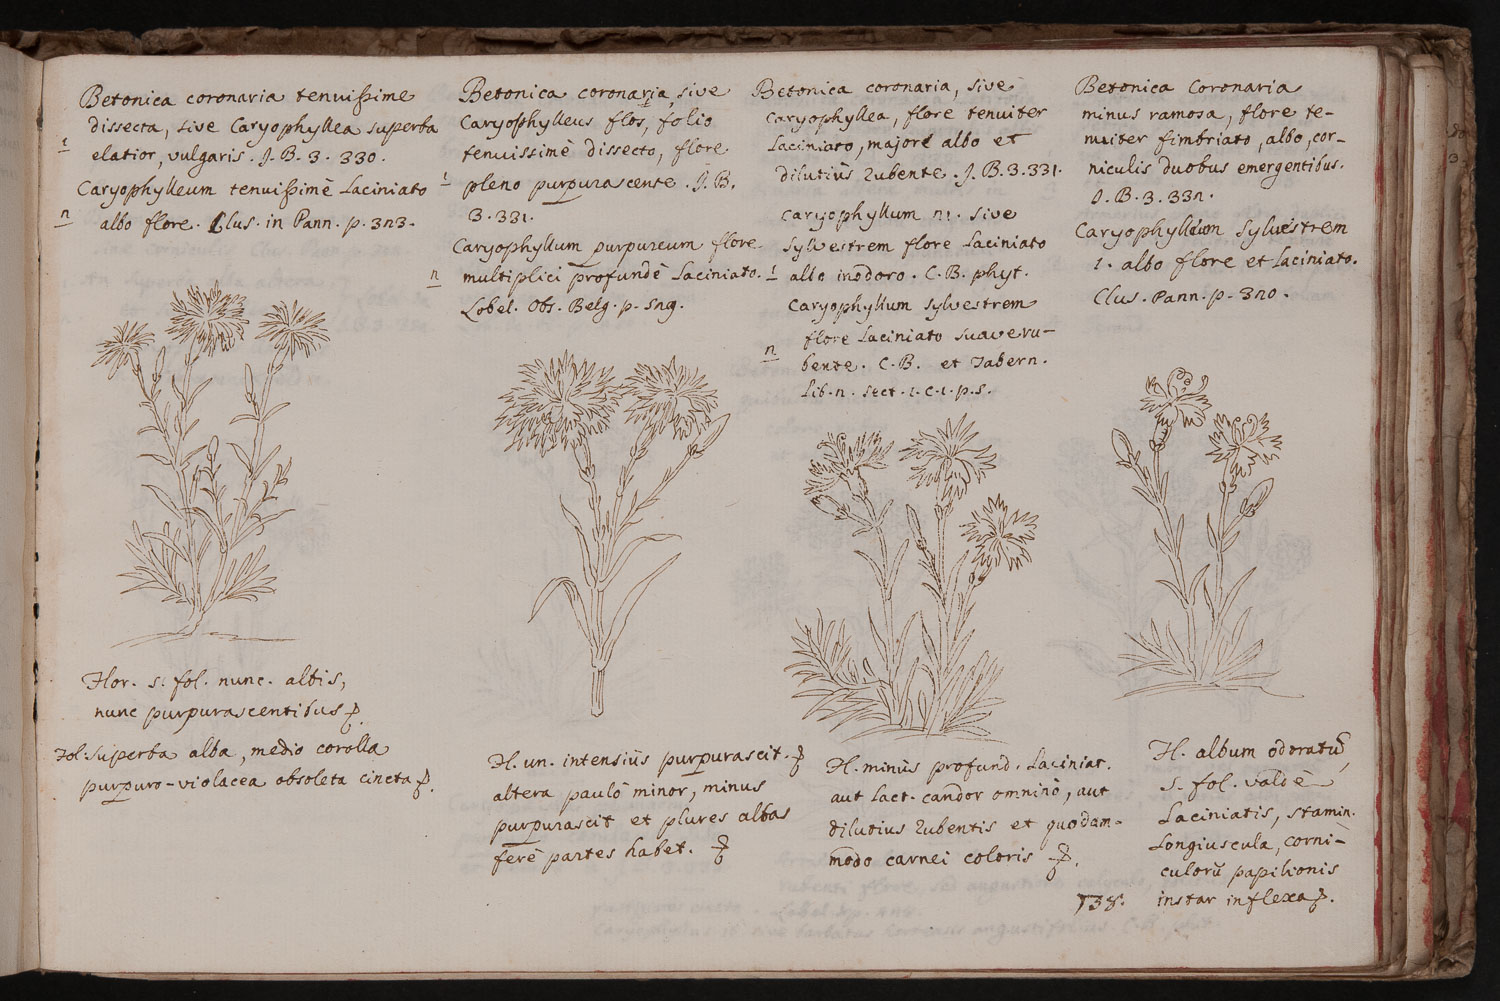 Betonica coronaria tenuißime
dissecta, sive Caryophyllea superba
1 elatior, vulgaris. J. B. 3. 330.
Caryophylleum tenuißimè Laciniato
n albo flore. Clus. in Pann. p. 3n3.
Flor. 5. fol. nunc. albis,
nunc purpurascentibus
Fol: superba alba, medio corolla
purpuro-violacea obsoleta cincta
Betonica coronaria, sive
Caryophylleus flos, folio
tenuissimè dissecto, flore
1 pleno purpurascente. J. B.
3. 331.
Caryophyllum purpureum flore
n multiplici profundè Laciniato.
Lobel. Obs. Belg. p. 5ng.
Fl. un. intensiùs purpurascit.
altera paulò minor, minus
purpurascit et plures albas
ferè partes habet.
Betonica coronaria, sive
Caryophyllea, flore tenuiter
Laciniato, majore albo et
dilutiùs rubente. J. B. 3. 331.
Caryophyllum n1. sive
Sylvestrem flore Laciniato
1 albo inodoro. C. B. phyt.
Caryophyllum sylvestrem
flore Laciniato suaveru-
n bente. C. B. et Tabern.
Lib. n. sect. 1. C. 1. p. 5.
Fl. minùs profund. Laciniat.
aut Lact. candor omninò, aut
dilutius rubentis et quodam-
modo carnei coloris
Betonica Coronaria
minus ramosa, flore te-
nuiter fimbriato, albo, cor-
niculis duobus emergentibus.
J. B. 3. 33n.
Caryophylleum Sylvestrem
1. albo flore et Laciniato.
Clus. Pann. p. 3n0.
Fl. album odoratũ,
5. fol. valdè
Laciniatis, stamin.
Longiuscula, corni-
culorũ papilionis
instar inflexa.
138.